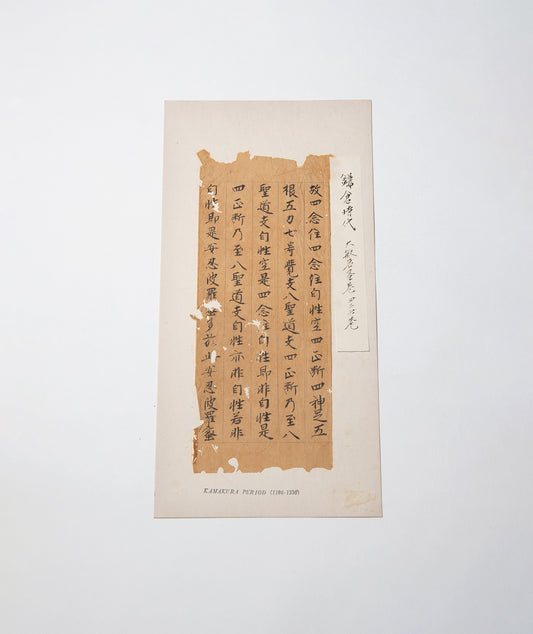 鎌倉時代 大般若
故四念住四念住自性空四正断四神足五
根五力七等覺支八聖道支四正断乃至八
聖道支自性空是四念住自性即非自性是
四正断乃至八聖道支自性亦非自性若非
自性即是安忍波羅蜜多於此安忍波羅蜜
KAMAKURA PERIOD